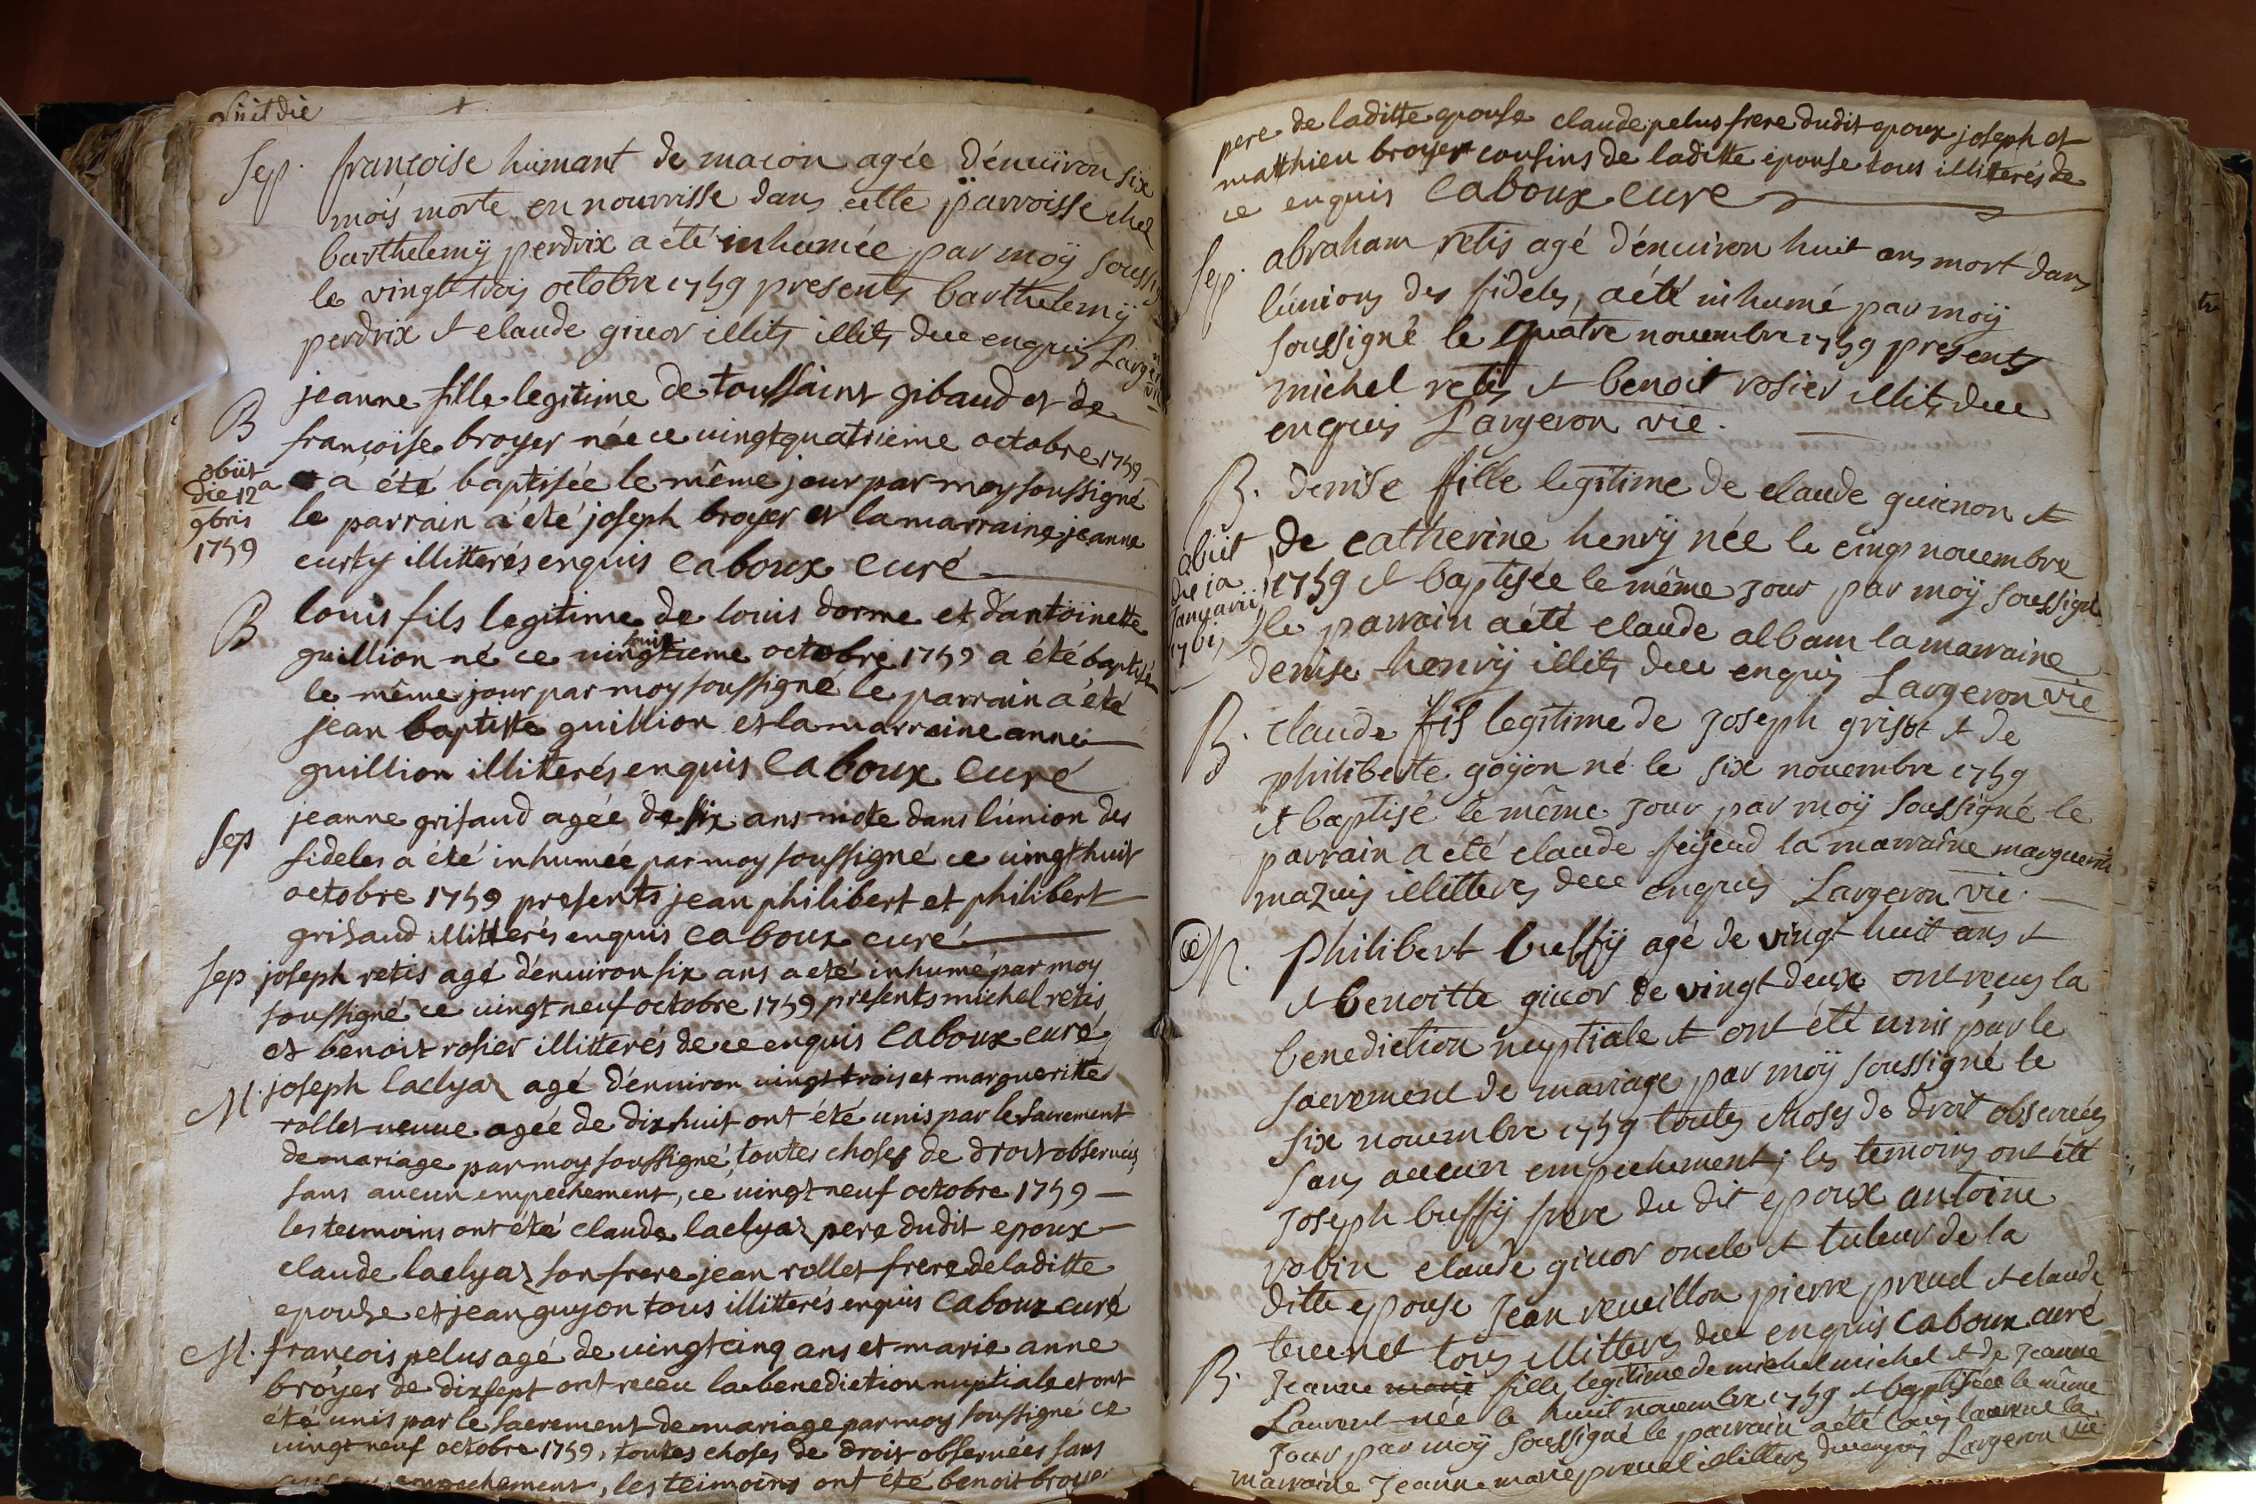 Suit die
Sep. françoise humant de macon agée d'énuiron six
mois morte en nourrisse dans cette parroisse chez
barthelemÿ perdrix a été inhumée par moÿ soussig
le vingt trois octobre 1759 presents barthelemÿ
perdrix et claude giuor illits illits duc enquis Larger
B jeanne fille legitime de toussaint gibaud et de
françoise broyer née ce uingtquatrieme octobre 1759
obiit die 12a 9bris 1759
a été baptisée le même jour par moy soussigné
le parrain a été joseph broyer et la marraine jeanne
curty illitterés enquis caboux curé
B louis fils legitime de louis dorme et d'antoinette
huit
guillion né ce uingtieme octobre 1759 a été baptisé
le même jour par moy soussigné le parrain a été
jean baptiste guillion et la marraine anne
guillion illitterés enquis caboux curé
Sep jeanne grisaud agée de six ans mote dans l'union des
fideles a été inhumée par moy soussigné ce uingt huit
octobre 1759 presents jean philibert et philibert
grisaud illitterés enquis caboux curé
sep joseph retis agé d'énuiron six ans a eté inhumé par moy
soussigné ce uingt neuf octobre 1759 presents michel retis
et benoit rosier illitterés de ce enquis caboux curé
M. joseph laclyaz agé d'énuiron uingt trois et margueritte
rollet ueuue agée de dixhuit ont été unis par le sacrement
de mariage par moy soussigné, toutes choses de droit obseruées
sans aucun empechement, ce uingt neuf octobre 1759
les temoins ont été claude laclyaz pere dudit epoux
claude laclyaz son frere jean rollet frere de laditte
epouse et jean guyon tous illitterés enquis caboux curé
M. françois pelus agé de uingt cinq ans et marie anne
broyer de dixsept ont receu la benediction nuptiale et ont
été unis par le sacrement de mariage par moy soussigné ce
uingt neuf octobre 1759, toutes choses de droit obseruées sans
aucun empechement, les temoins ont été benoit broyer
pere de laditte epouse claude pelus frere dudit epoux joseph et
matthieu broyer cousins de laditte epouse tous illitterés de
ce enquis caboux cure
Sep. abraham retis agé d'énuiron huit ans mort dans
l'únion des fideles, a été inhumé par moÿ
soussigné le quatre nouembre 1759 presents
michel retis et benoit rosier illits duc
enquis Largeron vic.
B. denise fille legitime de claude guienon et
de catherine henrÿ née le cinq nouembre
obiit die ja januarii
1759 et baptisée le même jour par moÿ soussigné
le parrain a été claude albam la marraine
denise henrÿ illits duc enquis Largeron vic
B. claude fils legitime de joseph grisot et de
philiberte goÿon né le six nouembre 1759
et baptisé le même jour par moÿ soussigné le
parrain a été claude la marraine marguerite
mazuis illitteres duc enquis Largeron vic.
M. philibert buffÿ agé de vingt huit ans et
et benoitte giuor de vingt deux ont reçus la
benediction nuptiale et ont été unis par le
sacrement de mariage par moÿ soussigné le
six nouembre 1759 toutes choses de droit obseruées
sans aucun empechement; les temoins ont été
joseph buffÿ frere du dit epoux antoine
robin claude giuor oncle et tuteur de la
ditte epouse jean reueillon pierre preud et claude
tous illitteres duc enquis caboux curé
B. jeanne marie fille legitime de michel michel et de jeanne
Laurent née le huit nouembre 1759 et baptisée le même
jour par moÿ soussigné le parrain a été la
marraine jeanne marie illitteres duc enquis Largeron vic